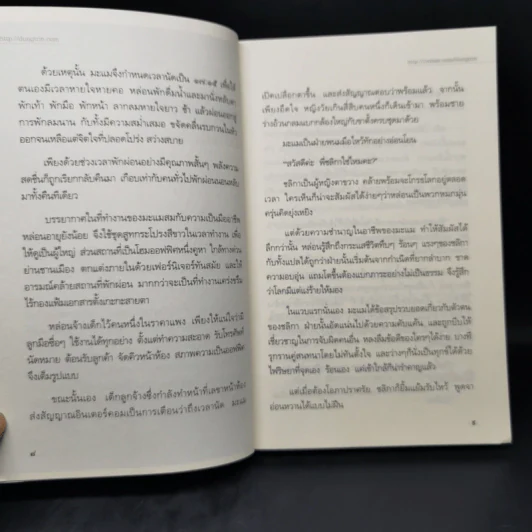 ด้วยเหตุนั้น มะแมจึงกำหนดเวลานัดเป็น ๑๗:๑๕ เพื่อให้
ตนเองมีเวลาหายใจหายคอ หล่อนพักดื่มน้ำและมานั่งหลับตา
พักเท้า พักมือ พักหน้า ลากลมหายใจยาว ช้า แล้วผ่อนอยู่กับ
การพักลมนาน กับทั้งมีความสม่ำเสมอ ขจัดคลื่นรบกวนในหัว
ออกจนเหลือแต่จิตใจที่ปลอดโปร่ง สว่างสบาย
เพียงด้วยช่วงเวลาพักผ่อนอย่างมีคุณภาพสั้นๆ พลังความ
สดชื่นก็ถูกเรียกกลับคืนมา เกือบเท่ากับคนทั่วไปพักผ่อนนอนหลับ
มาทั้งคืนทีเดียว
บรรยากาศในที่ทำงานของมะแมสมกับความเป็นมืออาชีพ
หล่อนอายุยังน้อย จึงใช้ชุดสูทกระโปรงสีขาวในเวลาทำงาน เพื่อ
ให้ดูเป็นผู้ใหญ่ ส่วนสถานที่เป็นโฮมออฟฟิศหนึ่งคูหา ใกล้ทางด่วน
ย่านชานเมือง ตกแต่งภายในด้วยเฟอร์นิเจอร์ทันสมัย และให้
อารมณ์คล้ายสถานที่พักผ่อน มากกว่าจะเป็นที่ทำงานเคร่งขรึม
ไร้กองแฟ้มเอกสารตั้งเกะกะสายตา
หล่อนจ้างเด็กไว้คนหนึ่งในราคาแพง เพียงให้แน่ใจว่ามี
ลูกมือซื่อๆ ใช้งานได้ทุกอย่าง ตั้งแต่ทำความสะอาด รับโทรศัพท์
นัดหมาย ต้อนรับลูกค้า จัดคิวหน้าห้อง สภาพความเป็นออฟฟิศ
จึงเต็มรูปแบบ
ขณะนั้นเอง เด็กลูกจ้างซึ่งกำลังทำหน้าที่เลขาหน้าห้อง
ส่งสัญญาณอินเตอร์คอมเป็นการเตือนว่าถึงเวลานัด มะแม
๘
เปิดเปลือกตาขึ้น และส่งสัญญาณตอบว่าพร้อมแล้ว จากนั้น
เพียงอึดใจ หญิงวัยเกินสี่สิบคนหนึ่งก็เดินเข้ามา พร้อมชาย
มะแมเป็นฝ่ายพนมมือไหว้ทักอย่างอ่อนโยน
"สวัสดีค่ะ พี่ชลิกาใช่ไหมคะ?"
ชลิกาเป็นผู้หญิงตาขวาง คล้ายพร้อมจะโกรธโลกอยู่ตลอด
เวลา ใครเห็นก็น่าจะสัมผัสได้ง่ายๆว่าหล่อนเป็นพวกหมกมุ่น
ครุ่นคิดยุ่งเหยิง
แต่ด้วยความชำนาญในอาชีพของมะแม ทำให้สัมผัสได้
ลึกกว่านั้น หล่อนรู้สึกถึงกระแสชีวิตดิบๆ ร้อนๆ แรงๆของชลิกา
กับทั้งแปลได้ถูกว่าฝ่ายนั้นเริ่มต้นจากกำเนิดที่ยากลำบาก ขาด
ความอบอุ่น แถมโตขึ้นต้องแบกภาระอย่างไม่เป็นธรรม จึงรู้สึก
ว่าโลกมีแต่แง่ร้ายให้มอง
ในแวบแรกนั่นเอง มะแมได้ข้อสรุปรวบยอดเกี่ยวกับตัวตน
ของชลิกา ฝ่ายนั้นอัดแน่นไปด้วยความคับแค้น และถูกบีบให้
เชี่ยวชาญในการจับผิดคนอื่น หลงลืมข้อดีของใครๆได้ง่าย บางที
รุกรานคู่สนทนาโดยไม่ทันตั้งใจ และว่างๆก็นั่งเป็นทุกข์ได้ด้วย
ไฟริษยาที่จุดเอง ร้อนเอง แต่เข้าใกล้ก็น่ารำคาญแล้ว
แต่เมื่อต้องโอภาปราศรัย ชลิกาก็ยิ้มแย้มรับไหว้ พูดจา
อ่อนหวานได้แบบไม่ฝืน
๙